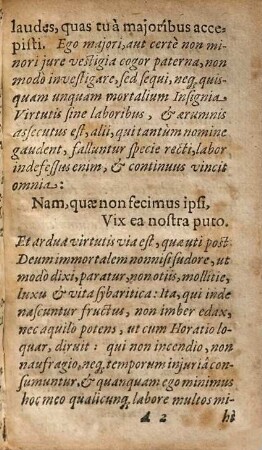 laudes, quas tu à majoribus acce-
pisti. Ego majori, aut certè non mi-
nori jure vestigia cogor paterna, non
modò investigare, sed sequi, neq; quis-
quam unquam mortalium Insignia
Virtutis sine laboribus, & ærumnis
assecutus est, alii, qui tantùm nomine
gaudent, falluntur specie recti, labor
indefessus enim, & continuus vincit
omnia:
Nam, quæ non fecimus ipsi,
Vix ea nostra puto.
Et ardua virtutis via est, quæ uti post
Deum immortalem nonnisi sudore, ut
modò dixi, paratur, non otiis, mollitie,
luxu & vita sybaritica: Ita, qui inde
nascuntur fructus, non imber edax,
nec aquilo potens, ut cum Horatio lo-
quar, diruit: qui non incendio, non
naufragio, neq; temporum injuriâ con-
sumuntur, & quanquam ego minimus
hoc meo qualicunq; labore multos mi-
A 2 hi